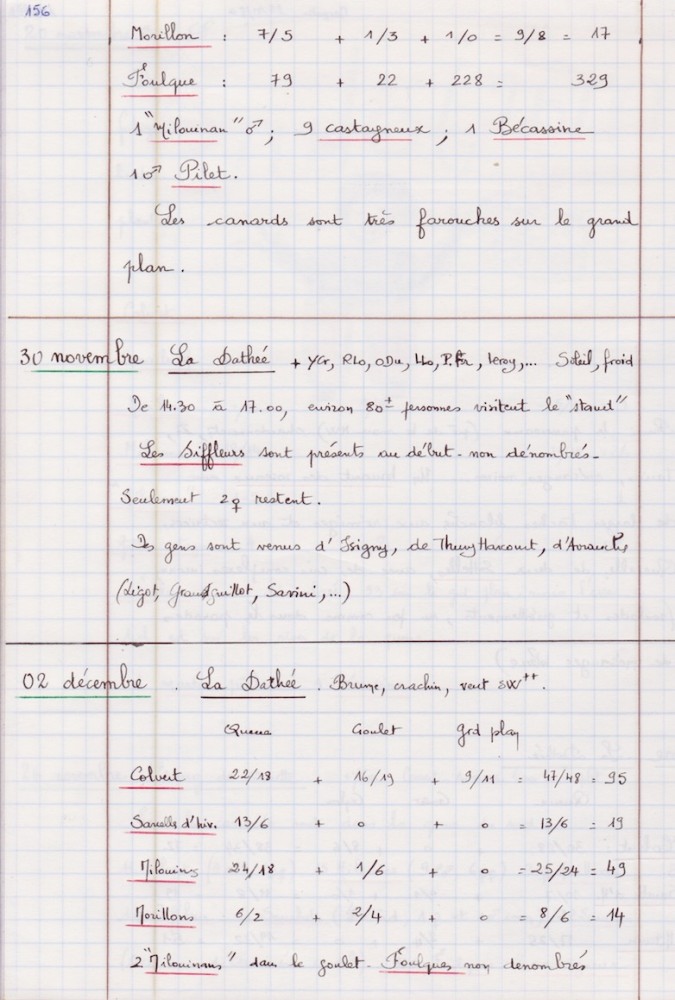 156
Morillon : 7/5 + 1/3 + 1/0 = 9/8 = 17
Foulque : 79 + 22 + 228 = 329
1 "Milouinan" ♂; 9 castagneux; 1 Bécassine
1♂ Pilet.
Les canards sont très farouches sur le grand
plan.
30 novembre La Dathée + YGr, RLo, ODu, LLo, P.Fr, Leroy,... Soleil, froid
De 14.30 à 17.00, environ 80± personnes visitent le "stand"
Les Siffleurs sont présents au début - non dénombrés -
Seulement 2♀ restent.
Des gens sont venus d'Isigny, de Thury Harcourt, d'Avranches
(Ligot, Grandguillot, Savini,...)
02 décembre . La Dathée . Brume, crachin, vent SW++.
Queue Goulet grd plan
Colvert 22/18 + 16/19 + 9/11 = 47/48 = 95
Sarcelles d'hiv. 13/6 + 0 + 0 = 13/6 = 19
Milouins 24/18 + 1/6 + 0 = 25/24 = 49
Morillons 6/2 + 2/4 + 0 = 8/6 = 14
2 "Milouinans" dans le goulet - Foulques non dénombrés